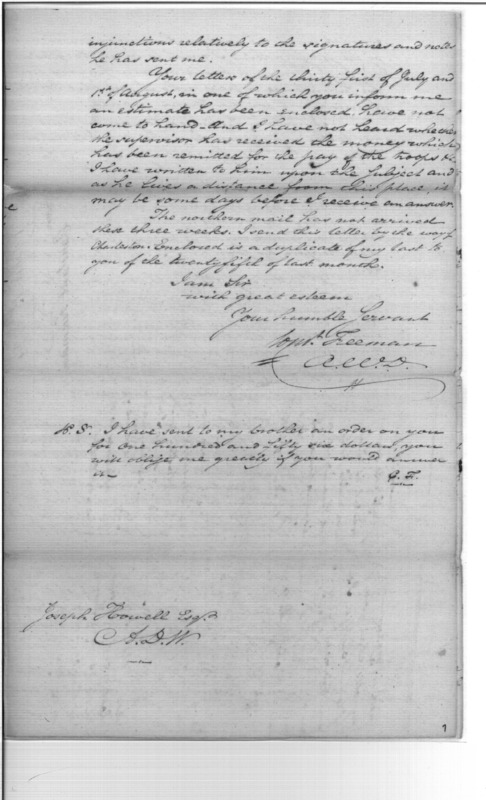 injunctions relatively to the signatures and needs
he has sent me.
Your letters of the thirty first of July and
1st of August, in one of which you inform me
an estimate has been enclosed, have not
come to hand. And I have not heard whether
the supervisor has received the money which
has been remitted for the pay of the troops &c
I have written to him upon the subject and
as he lives a distance from this place it
may be some days before I receive an answer.
The northern mail has not arrived
these three weeks. I send this letter by the way of
Charleston. Enclosed is a duplicate of my last to
you of the twenty fifth of last month.
I am Sir
with great esteem
Your humble Servant
Freeman
P. S. I have sent to my brother an order on you
for One hundred and fifty six dollars, you
will oblige me greatly if you would answer
it
C. F.
Joseph Howell Esqr.
A. D. W.